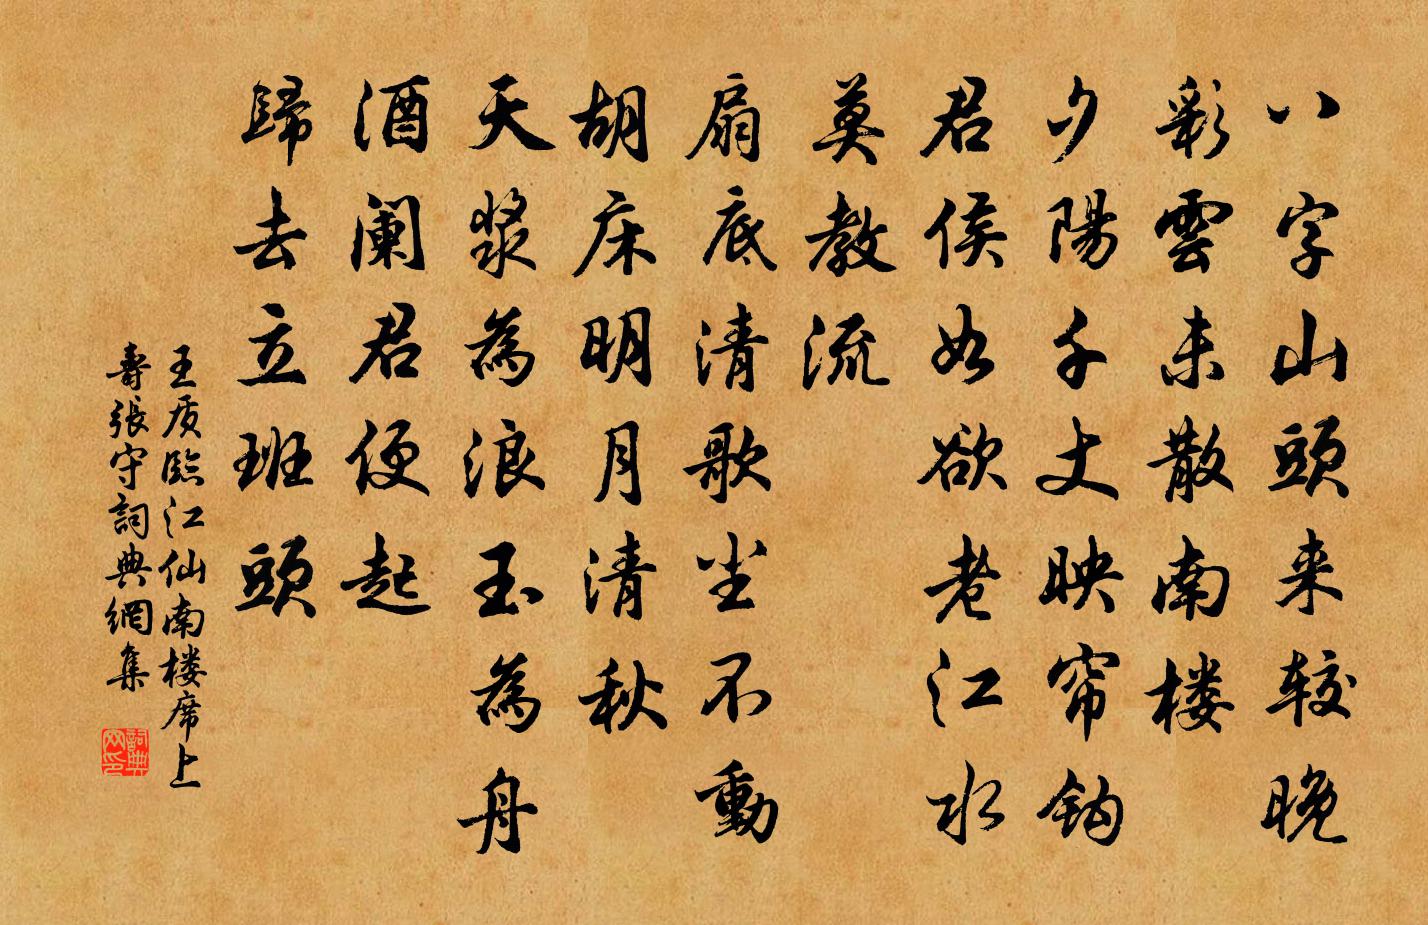 八字山頭来较晚
彩雲未散南楼
夕陽千丈映帘钩
君侯如欲老江水
莫教流
扇底清歌尘不動
胡床明月清秋
天漿為浪玉為舟
酒阑君便起
歸去立班頭
王质臨江仙南楼席上
壽張守詞典網集
詞典网印